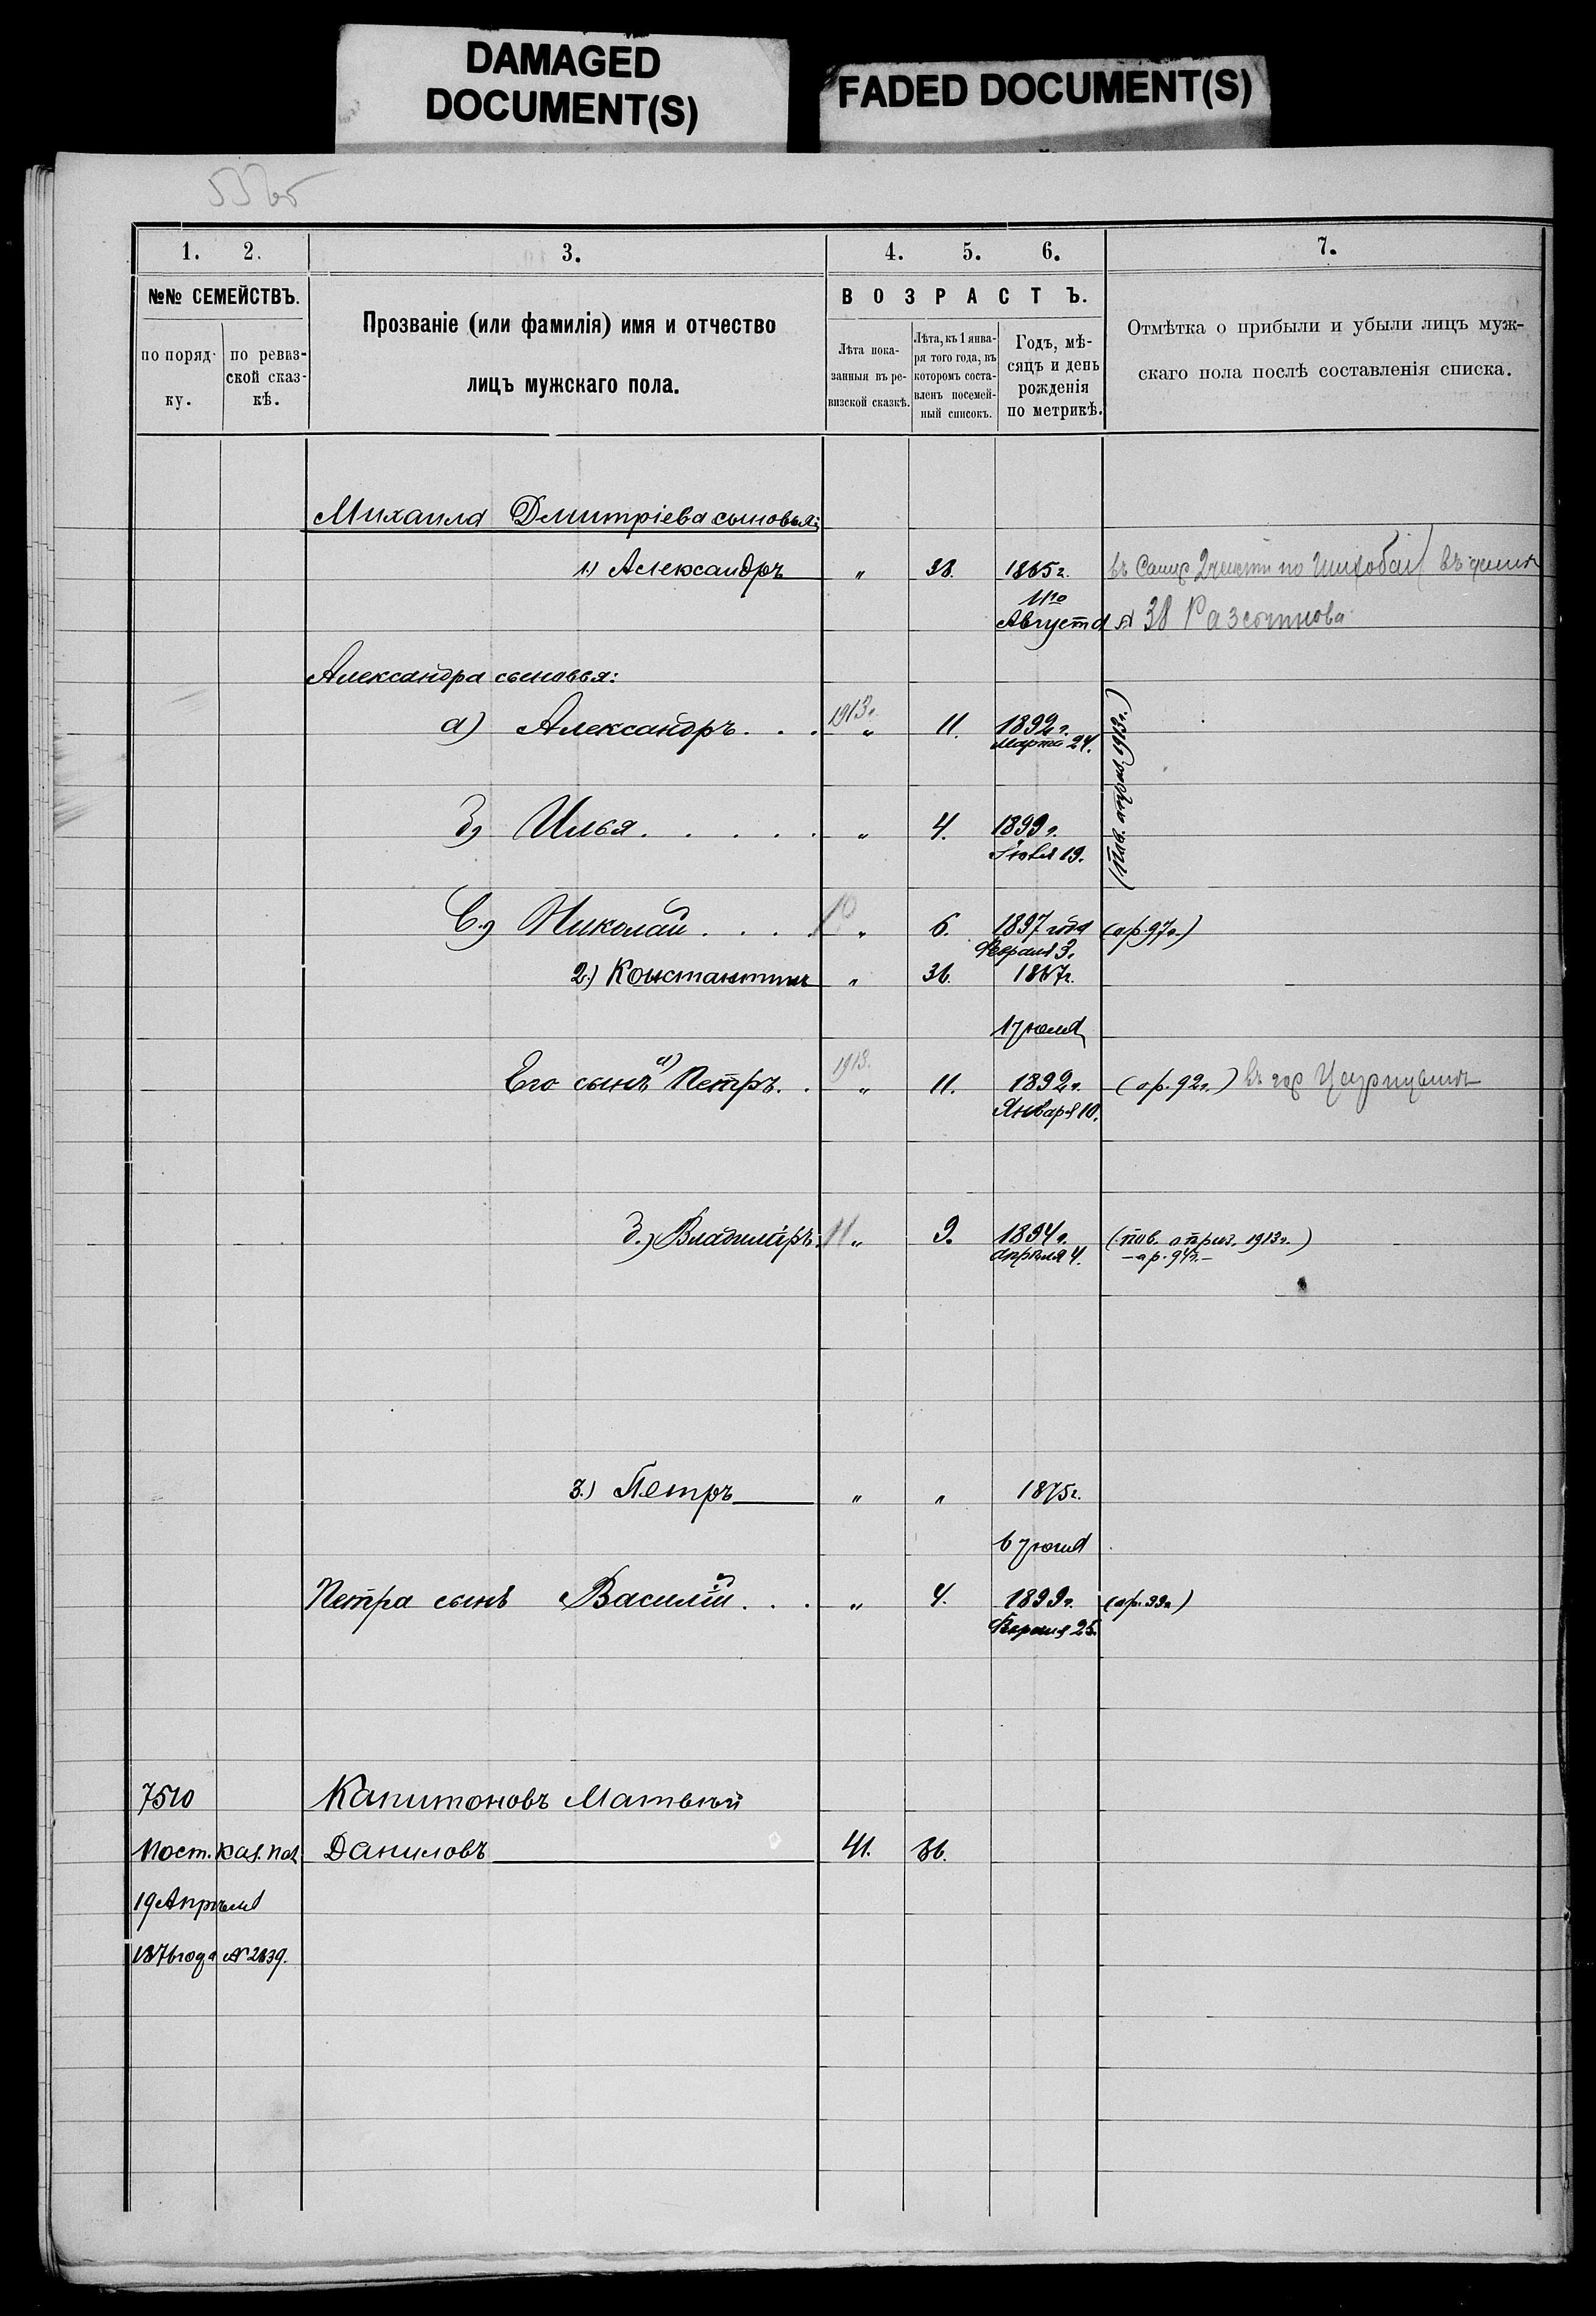 DAMAGED
DOCUMENT(S)
FADED DOCUMENT(S)
1. 2. 3. 4. 5. 6. 7.
№№ СЕМЕЙСТВЪ.
по поряд-
ку.
по ревиз-
ской сказ-
кѣ.
Прозваніе (или фамилія) имя и отчество
лицъ мужскаго пола.
ВОЗРАСТЪ.
Лѣта пока-
занныя въ ре-
визской сказкѣ.
Лѣта, къ 1 янва-
ря того года, въ
которомъ соста-
вленъ посемей-
ный списокъ.
Годъ, мѣ-
сяцъ и день
рожденія
по метрикѣ.
Отмѣтка о прибыли и убыли лицъ муж-
скаго пола послѣ составленія списка.
Михаила Дмитріева сыновья:
1.) Александръ " 38. 1865 г. 2 части по въ
11го
Августа № 38
Александра сыновья:
а) Александръ . . . 1913 г. " 11. 1892 г.
Марта 24.
б) Илья . . . . . " 4. 1899 г.
Іюля 19.
(пов. 1913 г.)
в) Николай . . . . 10 " 6. 1897 года (ар. 97 г.)
Февраля 3.
2.) Константинъ " 36. 1867 г.
17 юля
Его сынъ а) Петръ . . 1913. " 11. 1892 г. (ар. 92 г.) въ гор Царицынѣ
Января 10.
б.) Владиміръ. 11 " 9. 1894 г. (пов. о приз. 1913 г.)
апрѣля 4. – ар. 94 г. –
3.) Петръ " " 1875 г.
6 юля
Петра сынъ Василій . . . " 4. 1899 г. (ар. 99 г.)
Февраля 25.
7510 Капитоновъ Матвѣй
Пост. каз. пал. Даниловъ 41. 36.
19 Апрѣля
1876 года № 2839.